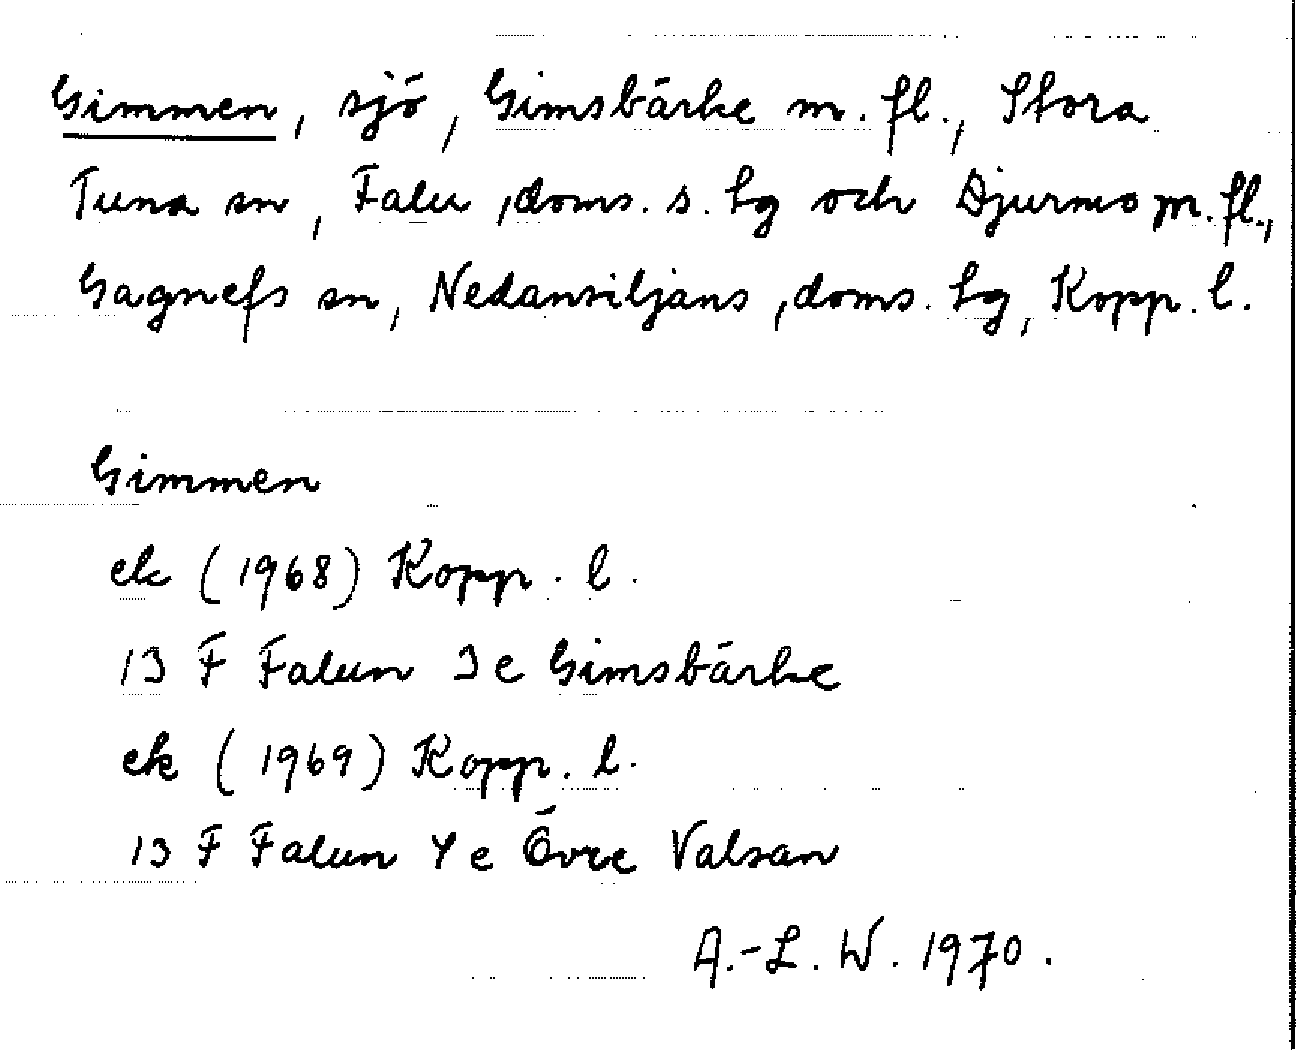 Gimmen, sjö, Gimsbärke m. fl., Stora
Tuna sn, Falu, doms. s. lg och Djurmo m. fl.,
Gagnefs sn, Nedansiljans, doms. lg, Kopp. l.
Gimmen
ek (1968) Kopp. l.
13 F Falun 3 e Gimsbärke
ek (1969) Kopp. l.
13 F Falun 4 e Övre Valsan
A.-L. W. 1970.